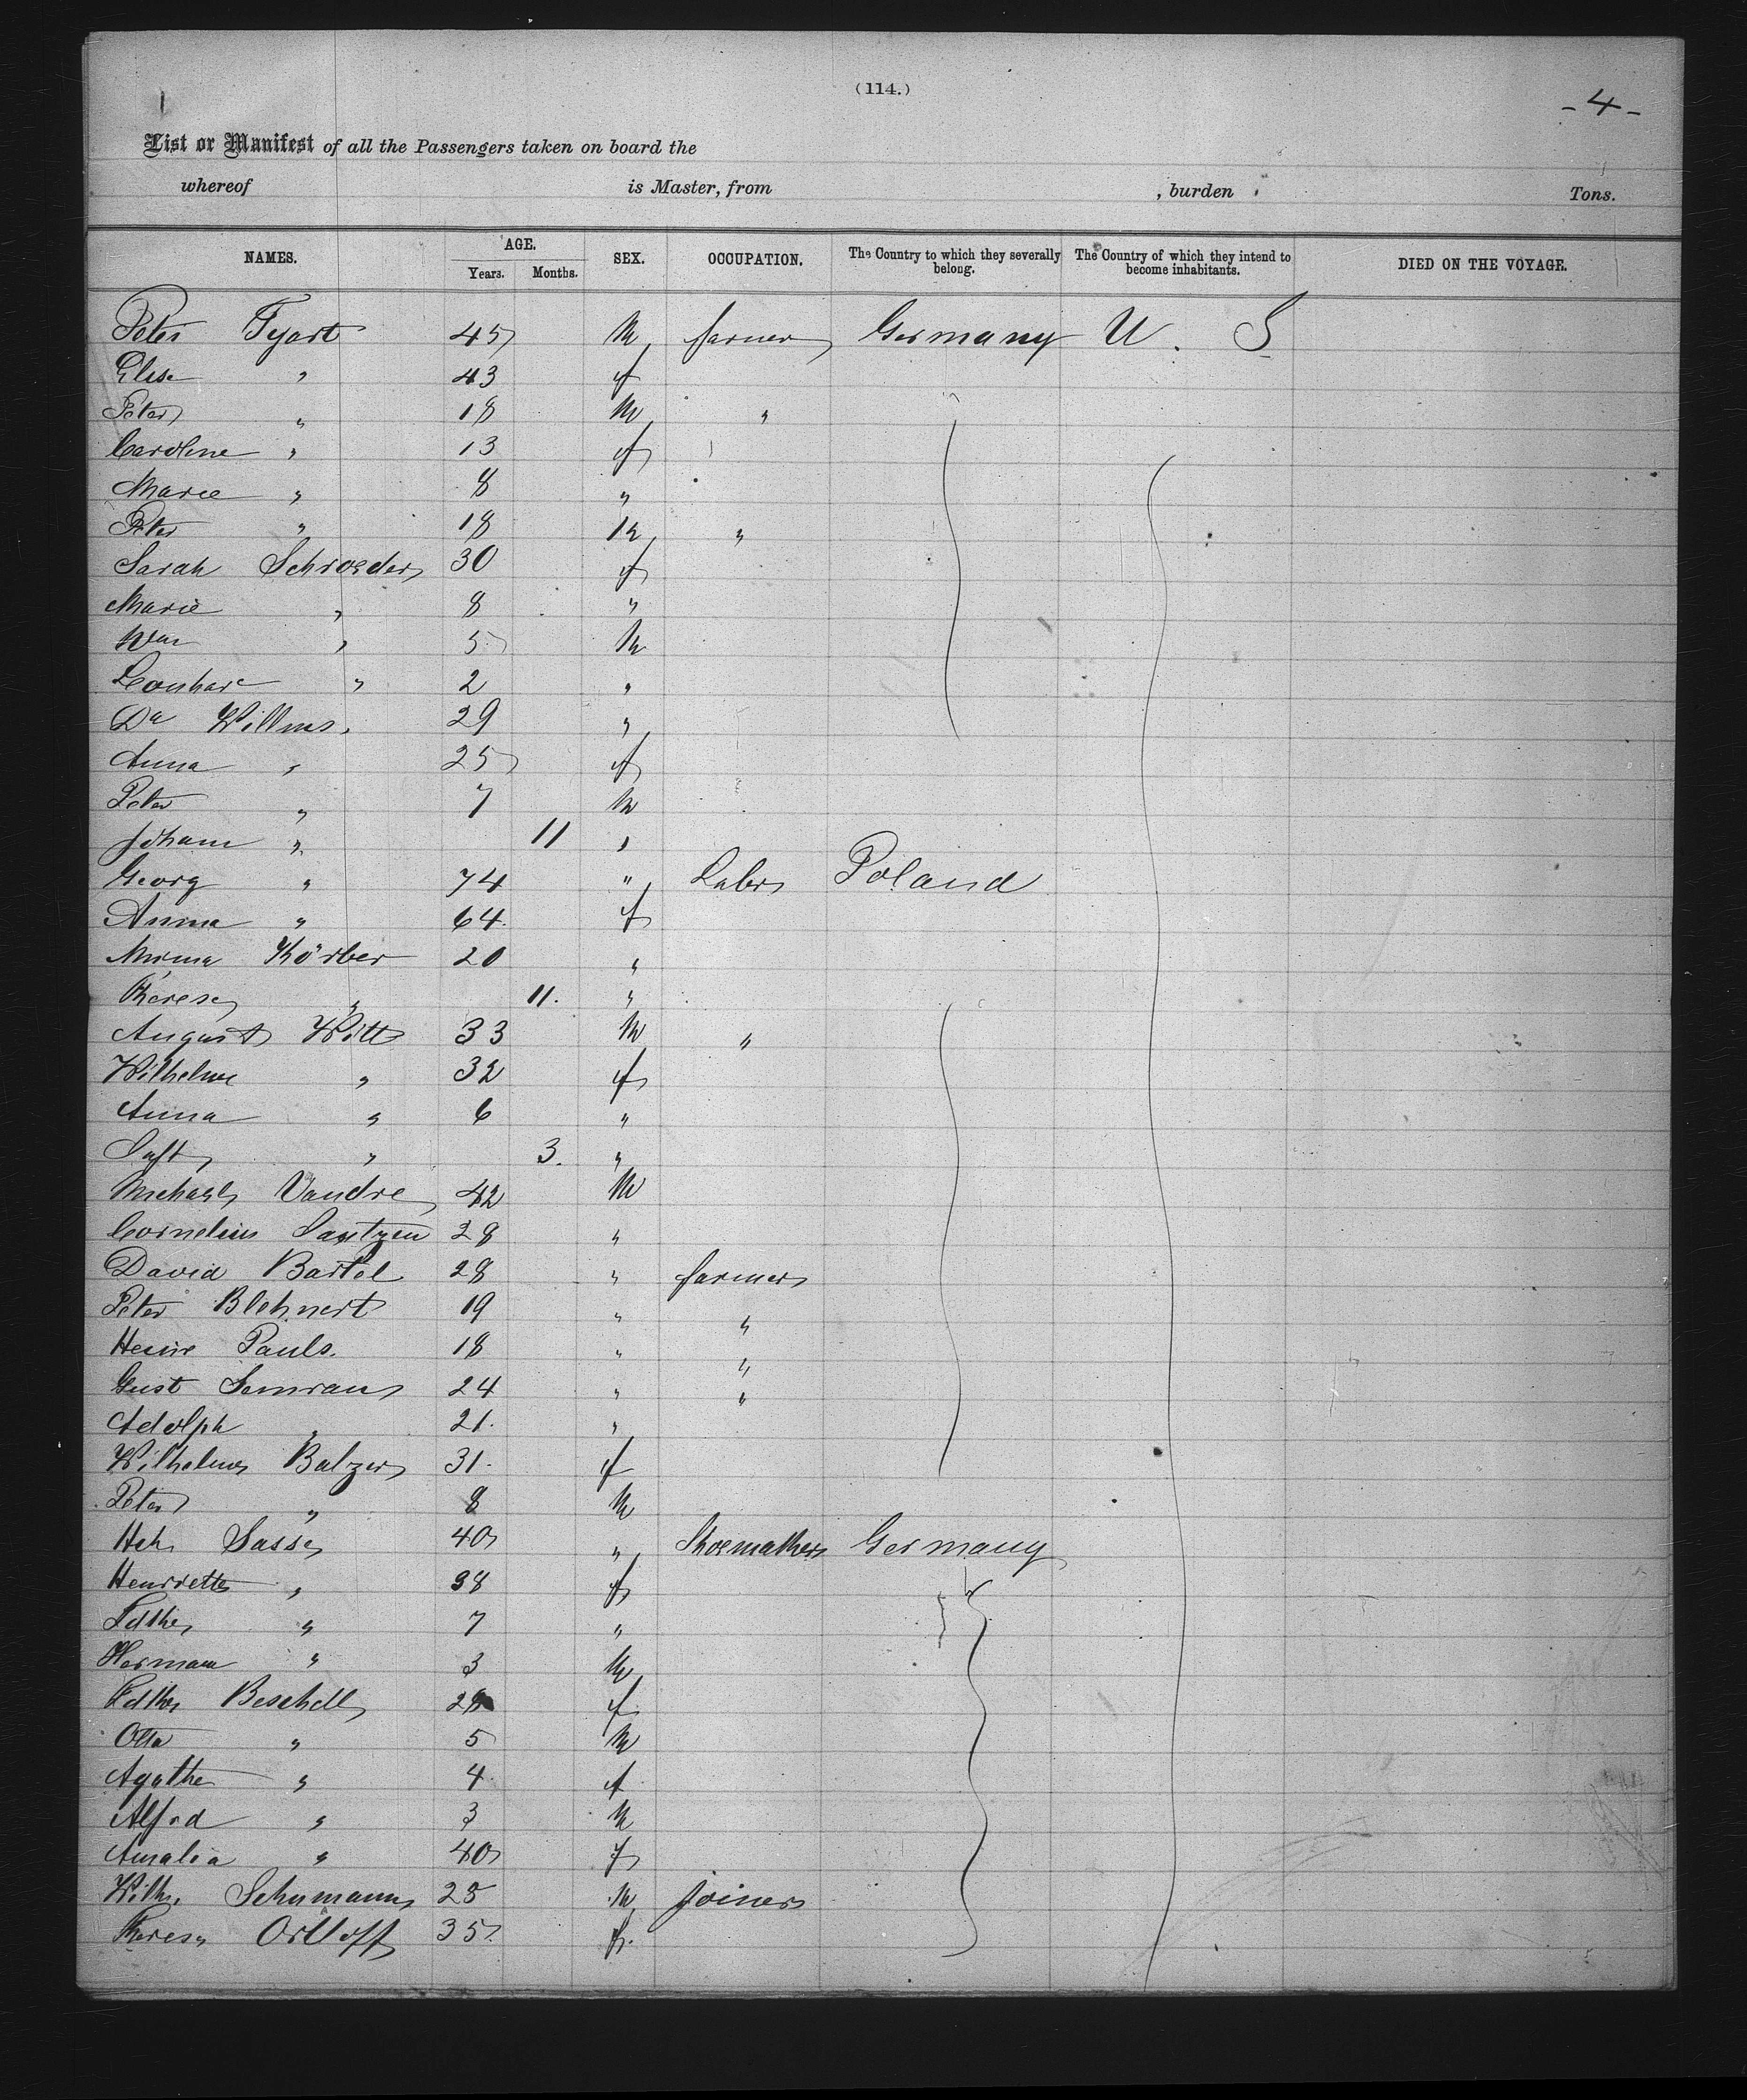 (114.)
-4-
List or Manifest of all the Passengers taken on board the
whereof is Master, from , burden Tons.
NAMES. AGE. Years. Months. SEX. OCCUPATION. The Country to which they severally belong. The Country of which they intend to become inhabitants. DIED ON THE VOYAGE.
Peter Tyart 45 M farmer Germany U. S
Elise " 43 f
Peter " 18 M "
Caroline " 13 f
Marie " 8 "
Peter " 18 M "
Sarah Schroeder 30 f
Marie " 8 "
Wm " 5 M
" 2 "
Da Willms. 29 "
Anna " 25 f
Peter " 7 M
Johann " 11 "
Georg " 74 " Labr Poland
Anna " 64. f
Körber 20 "
Therese " 11. "
August Witt 33 M "
Wilhelme " 32 f
Anna " 6 "
" 3. "
Michael Vandre 42 M
Cornelius 28 "
David Bartel 28 " farmer
Peter Blehnert 19 " "
Pauls. 18 " "
Gust Semrau 24 " "
Adolph " 21. "
Wilhelme Balzer 31. f
Peter " 8 M
Hch Sasse 40 " Shoemaker Germany
Henriette " 38 f
" 7 "
Hermann " 3 M
Beschell f
Otto " 5 M
Agathe " 4 f
Alfred " 3 M
Amalia " 40 f
Wilh. Schumann 25 M joiner
Theresa Orlloff 35. f.